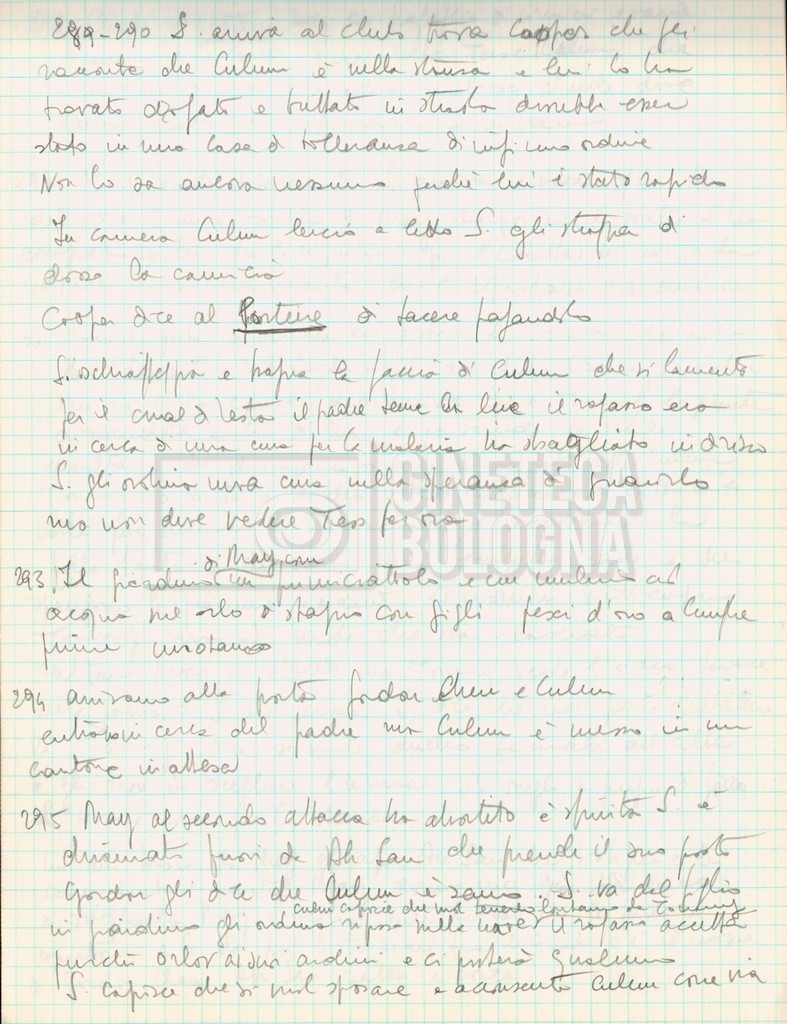 289-290 S. arriva al club trova Cooper che gli
racconta che Culum è nella stanza e lui lo ha
trovato drogato e buttato in strada dovrebbe esser
stato in una casa di tolleranza di infimo ordine
Non lo sa ancora nessuno perché lui è stato rapido
In camera Culum lercio a letto S. gli strappa di
dosso la camicia
Cooper dice al Portiere di tacere pagandolo
S. schiaffeggia e bagna la faccia di Culum che si lamenta
per il mal di testa il padre teme la lue il ragazzo era
in cerca di una cura per la malaria ha sbagliato indirizzo
S. gli ordina una cura nella speranza di guarirlo
ma non deve vedere Tess per ora
di May con
293, Il giardino un e un mulino ad
acqua orlo di stagno con gigli pesci d'oro a lunghe
pinne nuotano
294 arrivano alla porta Gordon Chen e Culum
entrano in cerca del padre ma Culum è messo in un
cantone in attesa
295 May al secondo attacco ha abortito è sfinita S. è
chiamato fuori da Ah Sam che prende il suo posto
Gordon gli dice che Culum è sano. S. va dal figlio
Culum capisce che vuol tenerlo lontano da
in giardino gli ordina riposo sulla nave il ragazzo accetta
purché Orlov ai suoi ordini e ci porterà qualcuno
S. capisce che si vuol sposare e acconsente Culum corre via
CINETECA
BOLOGNA